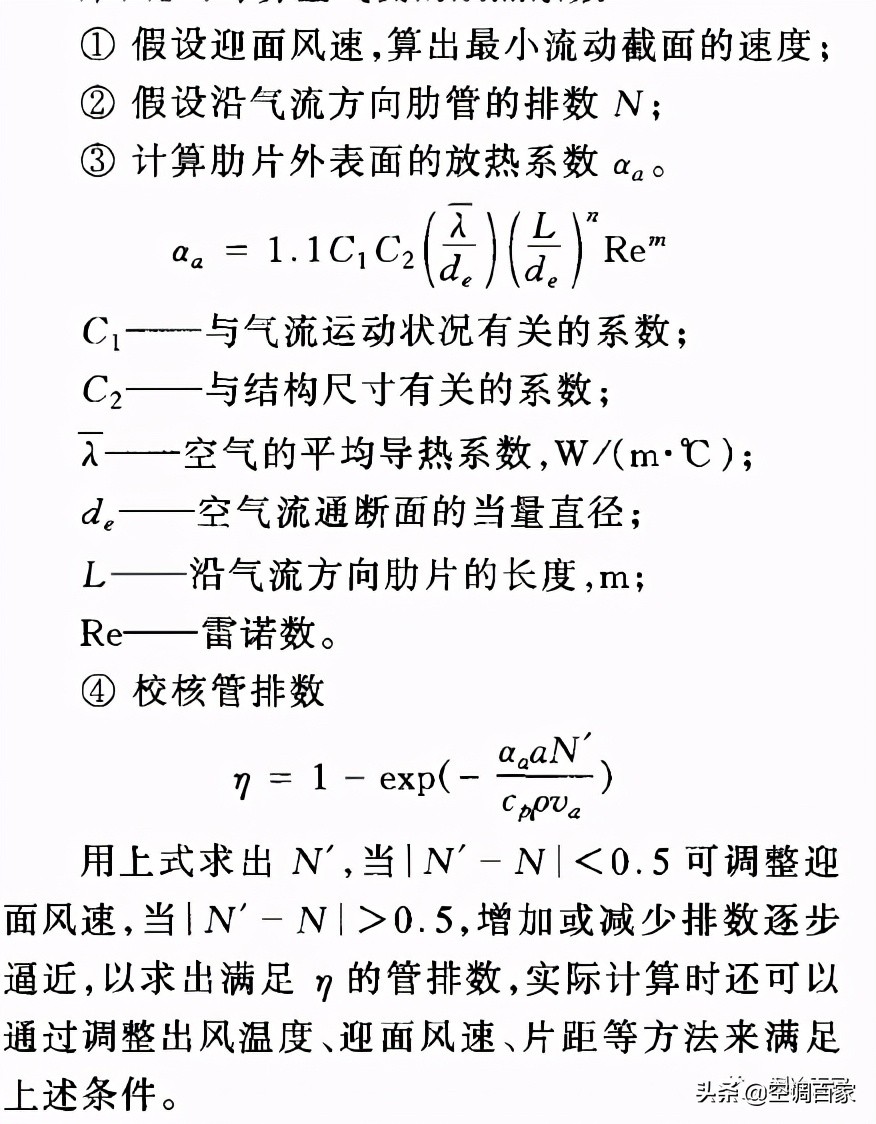 ① 假设迎面风速,算出最小流动截面的速度;
② 假设沿气流方向肋管的排数 N;
③ 计算肋片外表面的放热系数 αₐ。
αₐ = 1.1C₁C₂(λ̅/dₑ)(L/dₑ)ⁿReᵐ
C₁——与气流运动状况有关的系数;
C₂——与结构尺寸有关的系数;
λ̅——空气的平均导热系数,W/(m·℃);
dₑ——空气流通断面的当量直径;
L——沿气流方向肋片的长度,m;
Re——雷诺数。
④ 校核管排数
η = 1 - exp(- αₐaN′/cₚρvₐ)
用上式求出 N′,当|N′-N|<0.5 可调整迎
面风速,当|N′-N|>0.5,增加或减少排数逐步
逼近,以求出满足 η 的管排数,实际计算时还可以
通过调整出风温度、迎面风速、片距等方法来满足
上述条件。
头条 @空调百家